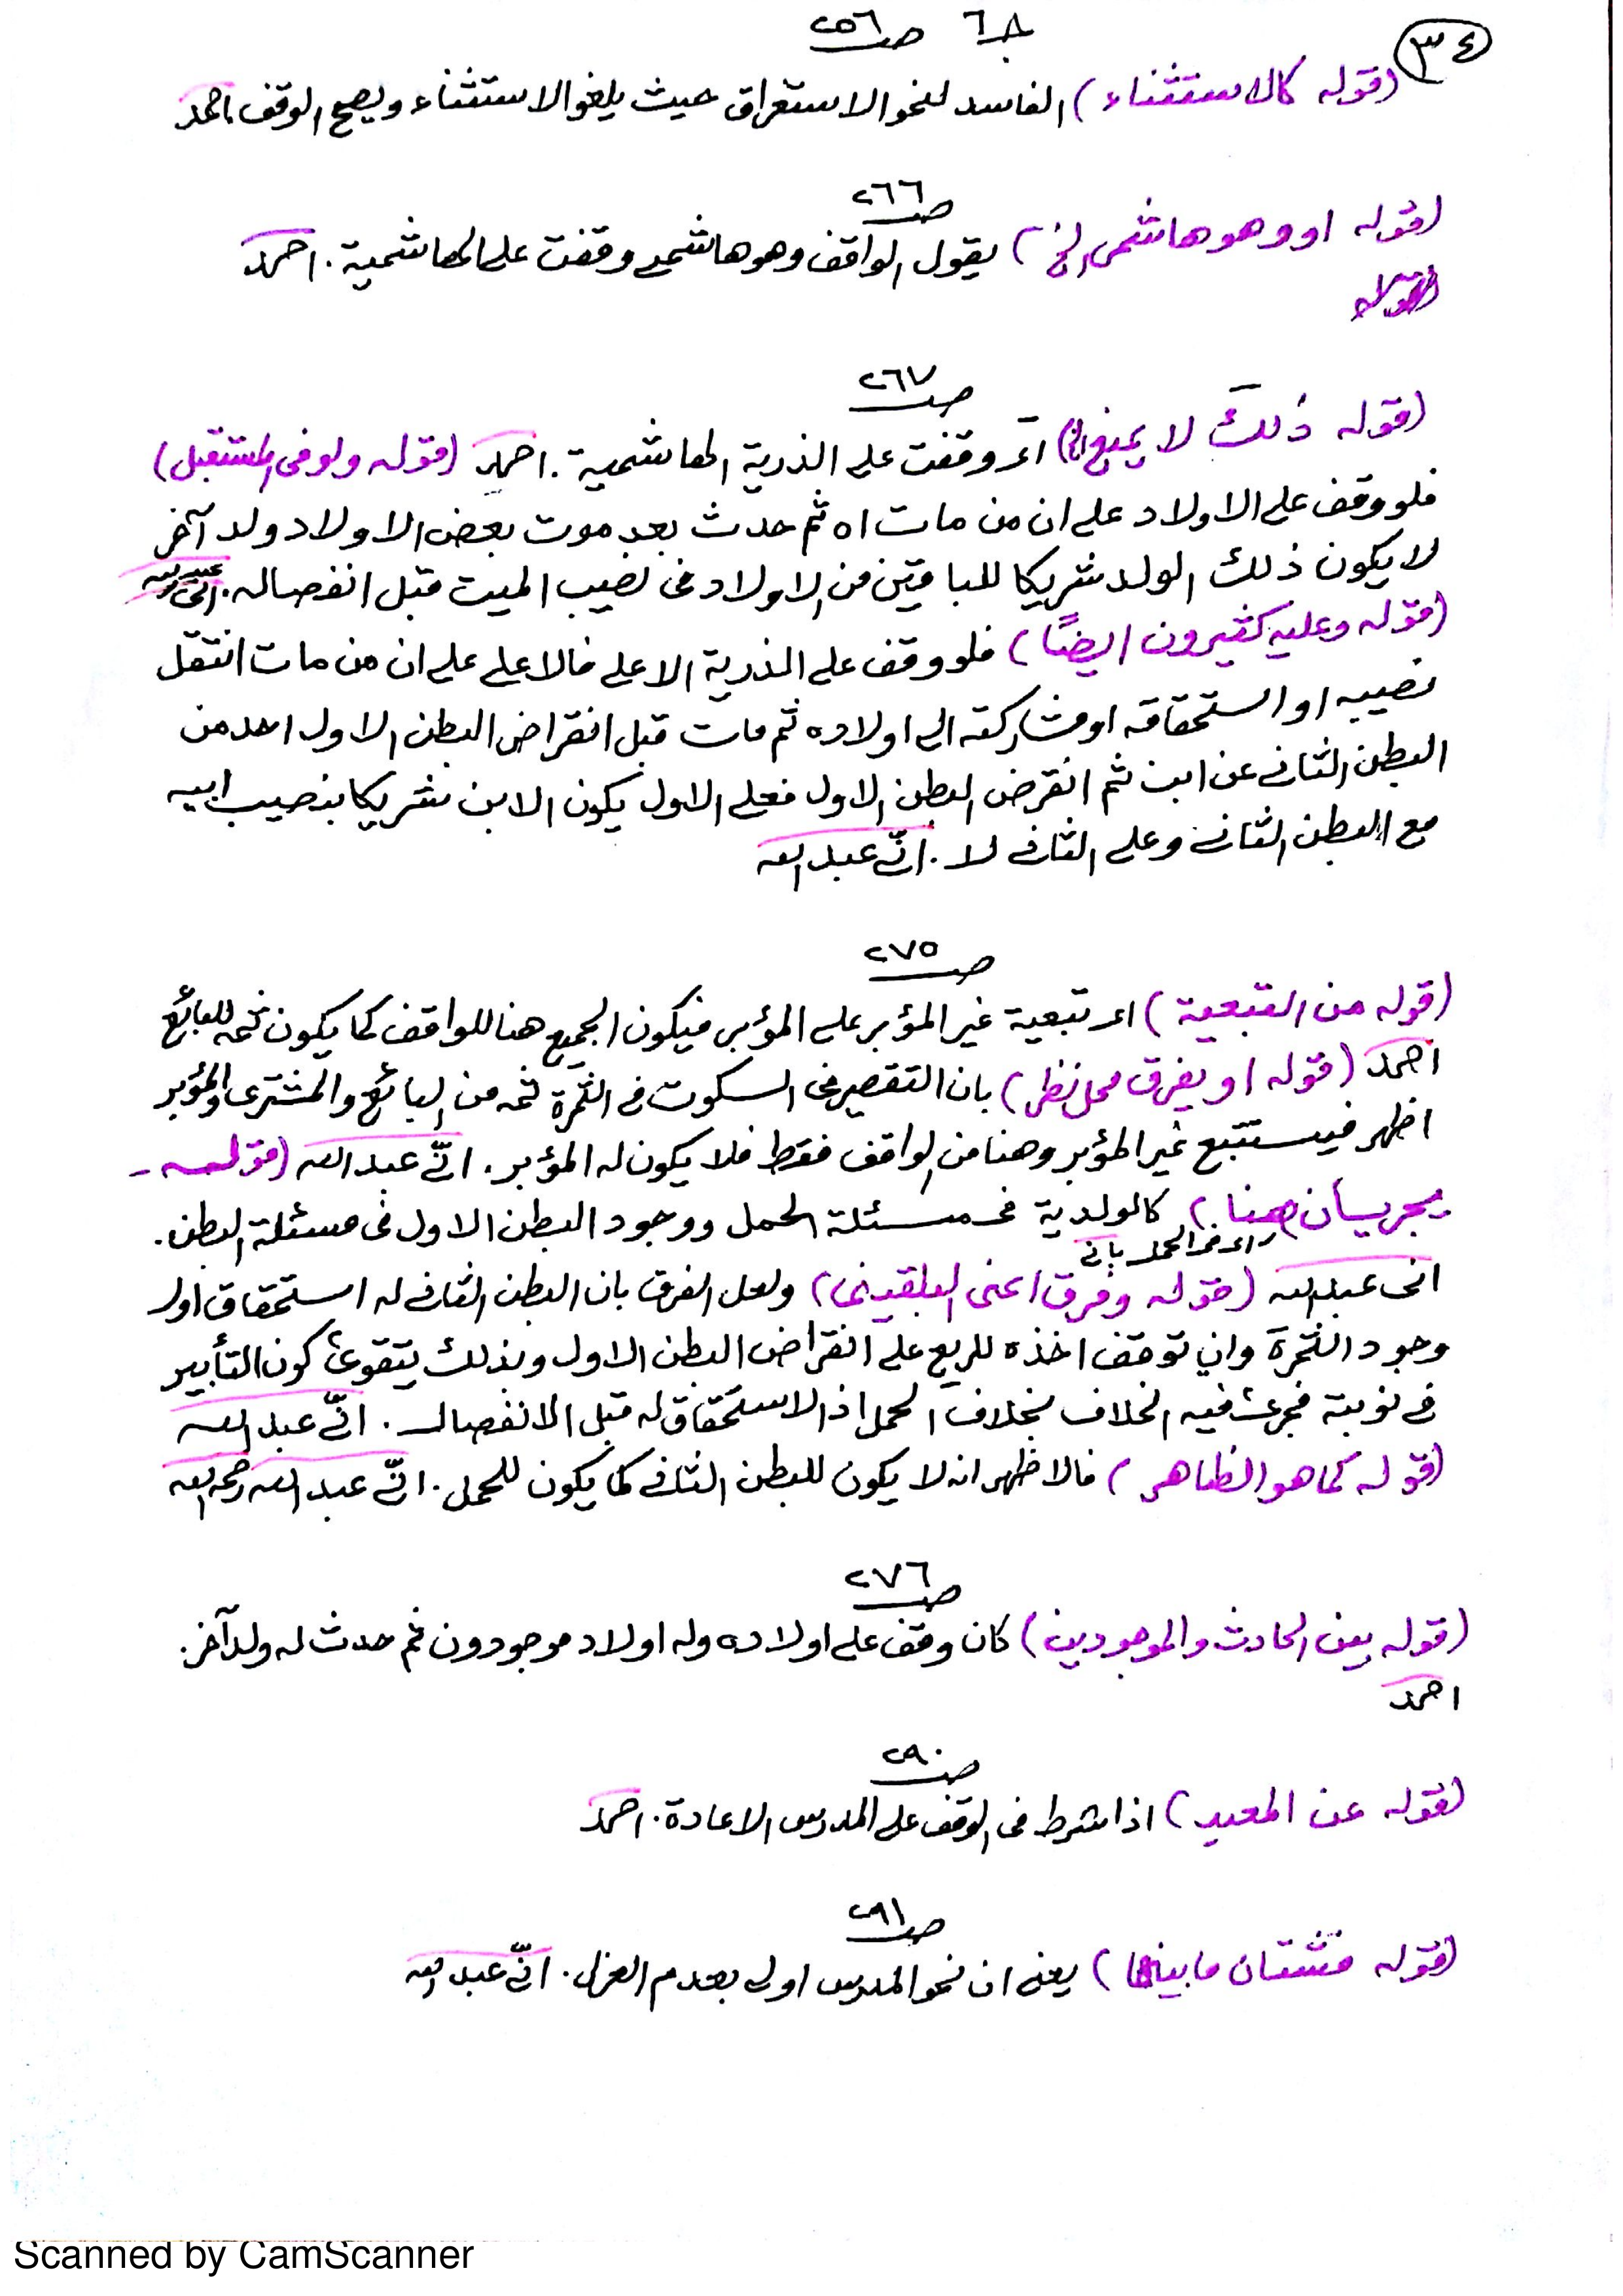 ٣٤
جـ ٦ صـ ٢٥٦
(قوله كالاستثناء) الفاسد لنحو الاستغراق حيث يلغو الاستثناء ويصح الوقف. احمد
صـ ٢٦٦
(قوله او وهو هاشمي الخ) يقول الواقف وهو هاشمي وقفت على الهاشمية. احمد
صـ ٢٦٧
(قوله ذلك لا يمنع الخ) اى وقفت على الذرية الهاشمية. احمد (قوله ولو في المستقبل)
فلو وقف على الاولاد على ان من مات اه ثم حدث بعد موت بعض الاولاد ولد آخر
لا يكون ذلك الولد شريكا للباقين من الاولاد في نصيب الميت قبل انفصاله. انّي عبد الله
(قوله وعليه كثيرون ايضًا) فلو وقف على الذرية الاعلى فالاعلى على ان من مات انتقل
نصيبه او استحقاقه او مشاركته الى اولاده ثم مات قبل انقراض البطن الاول احد من
البطن الثاني عن ابن ثم انقرض البطن الاول فعلى الاول يكون الابن شريكا بنصيب ابيه
مع البطن الثاني وعلى الثاني لا. انّي عبد الله
صـ ٢٧٥
(قوله من التبعية) اى تبعية غير المؤبر على المؤبر فيكون الجميع هنا للواقف كما يكون ثمه للبائع
احمد (قوله او يفرق محل نظر) بان التقصير في السكوت في الثمرة ثمه من البائع والمشترى والمؤبر
اظهر فيستتبع غير المؤبر وهنا من الواقف فقط فلا يكون له المؤبر. انّي عبد الله (قوله
يجريان هنا) كالولدية في مسئلة الحمل ووجود البطن الاول في مسئلة البطن.
اى في الحمل باني
انى عبد الله (قوله وفرق اعنى البلقيني) ولعل الفرق بان البطن الثاني له استحقاق اول
وجود الثمرة وان توقف اخذه للريع على انقراض البطن الاول وبذلك يتقوى كون التأبير
في نوبته فجرى فيه الخلاف بخلاف الحمل اذ لا استحقاق له قبل الانفصال. انّي عبد الله
(قوله كما هو الظاهر) فالاظهر انه لا يكون للبطن الثاني كما يكون للحمل. انّي عبد الله رحمه الله
صـ ٢٧٦
(قوله بين الحادث والموجودين) كان وقف على اولاده وله اولاد موجودون ثم حدث له ولد آخر.
احمد
صـ ٢٩٠
(قوله عن المعيد) اذا شرط في الوقف على المدرس الاعادة. احمد
صـ ٢٩١
(قوله فشتان ما بينهما) يعني ان نحو المدرس اولى بعدم العزل. انّي عبد الله
Scanned by CamScanner